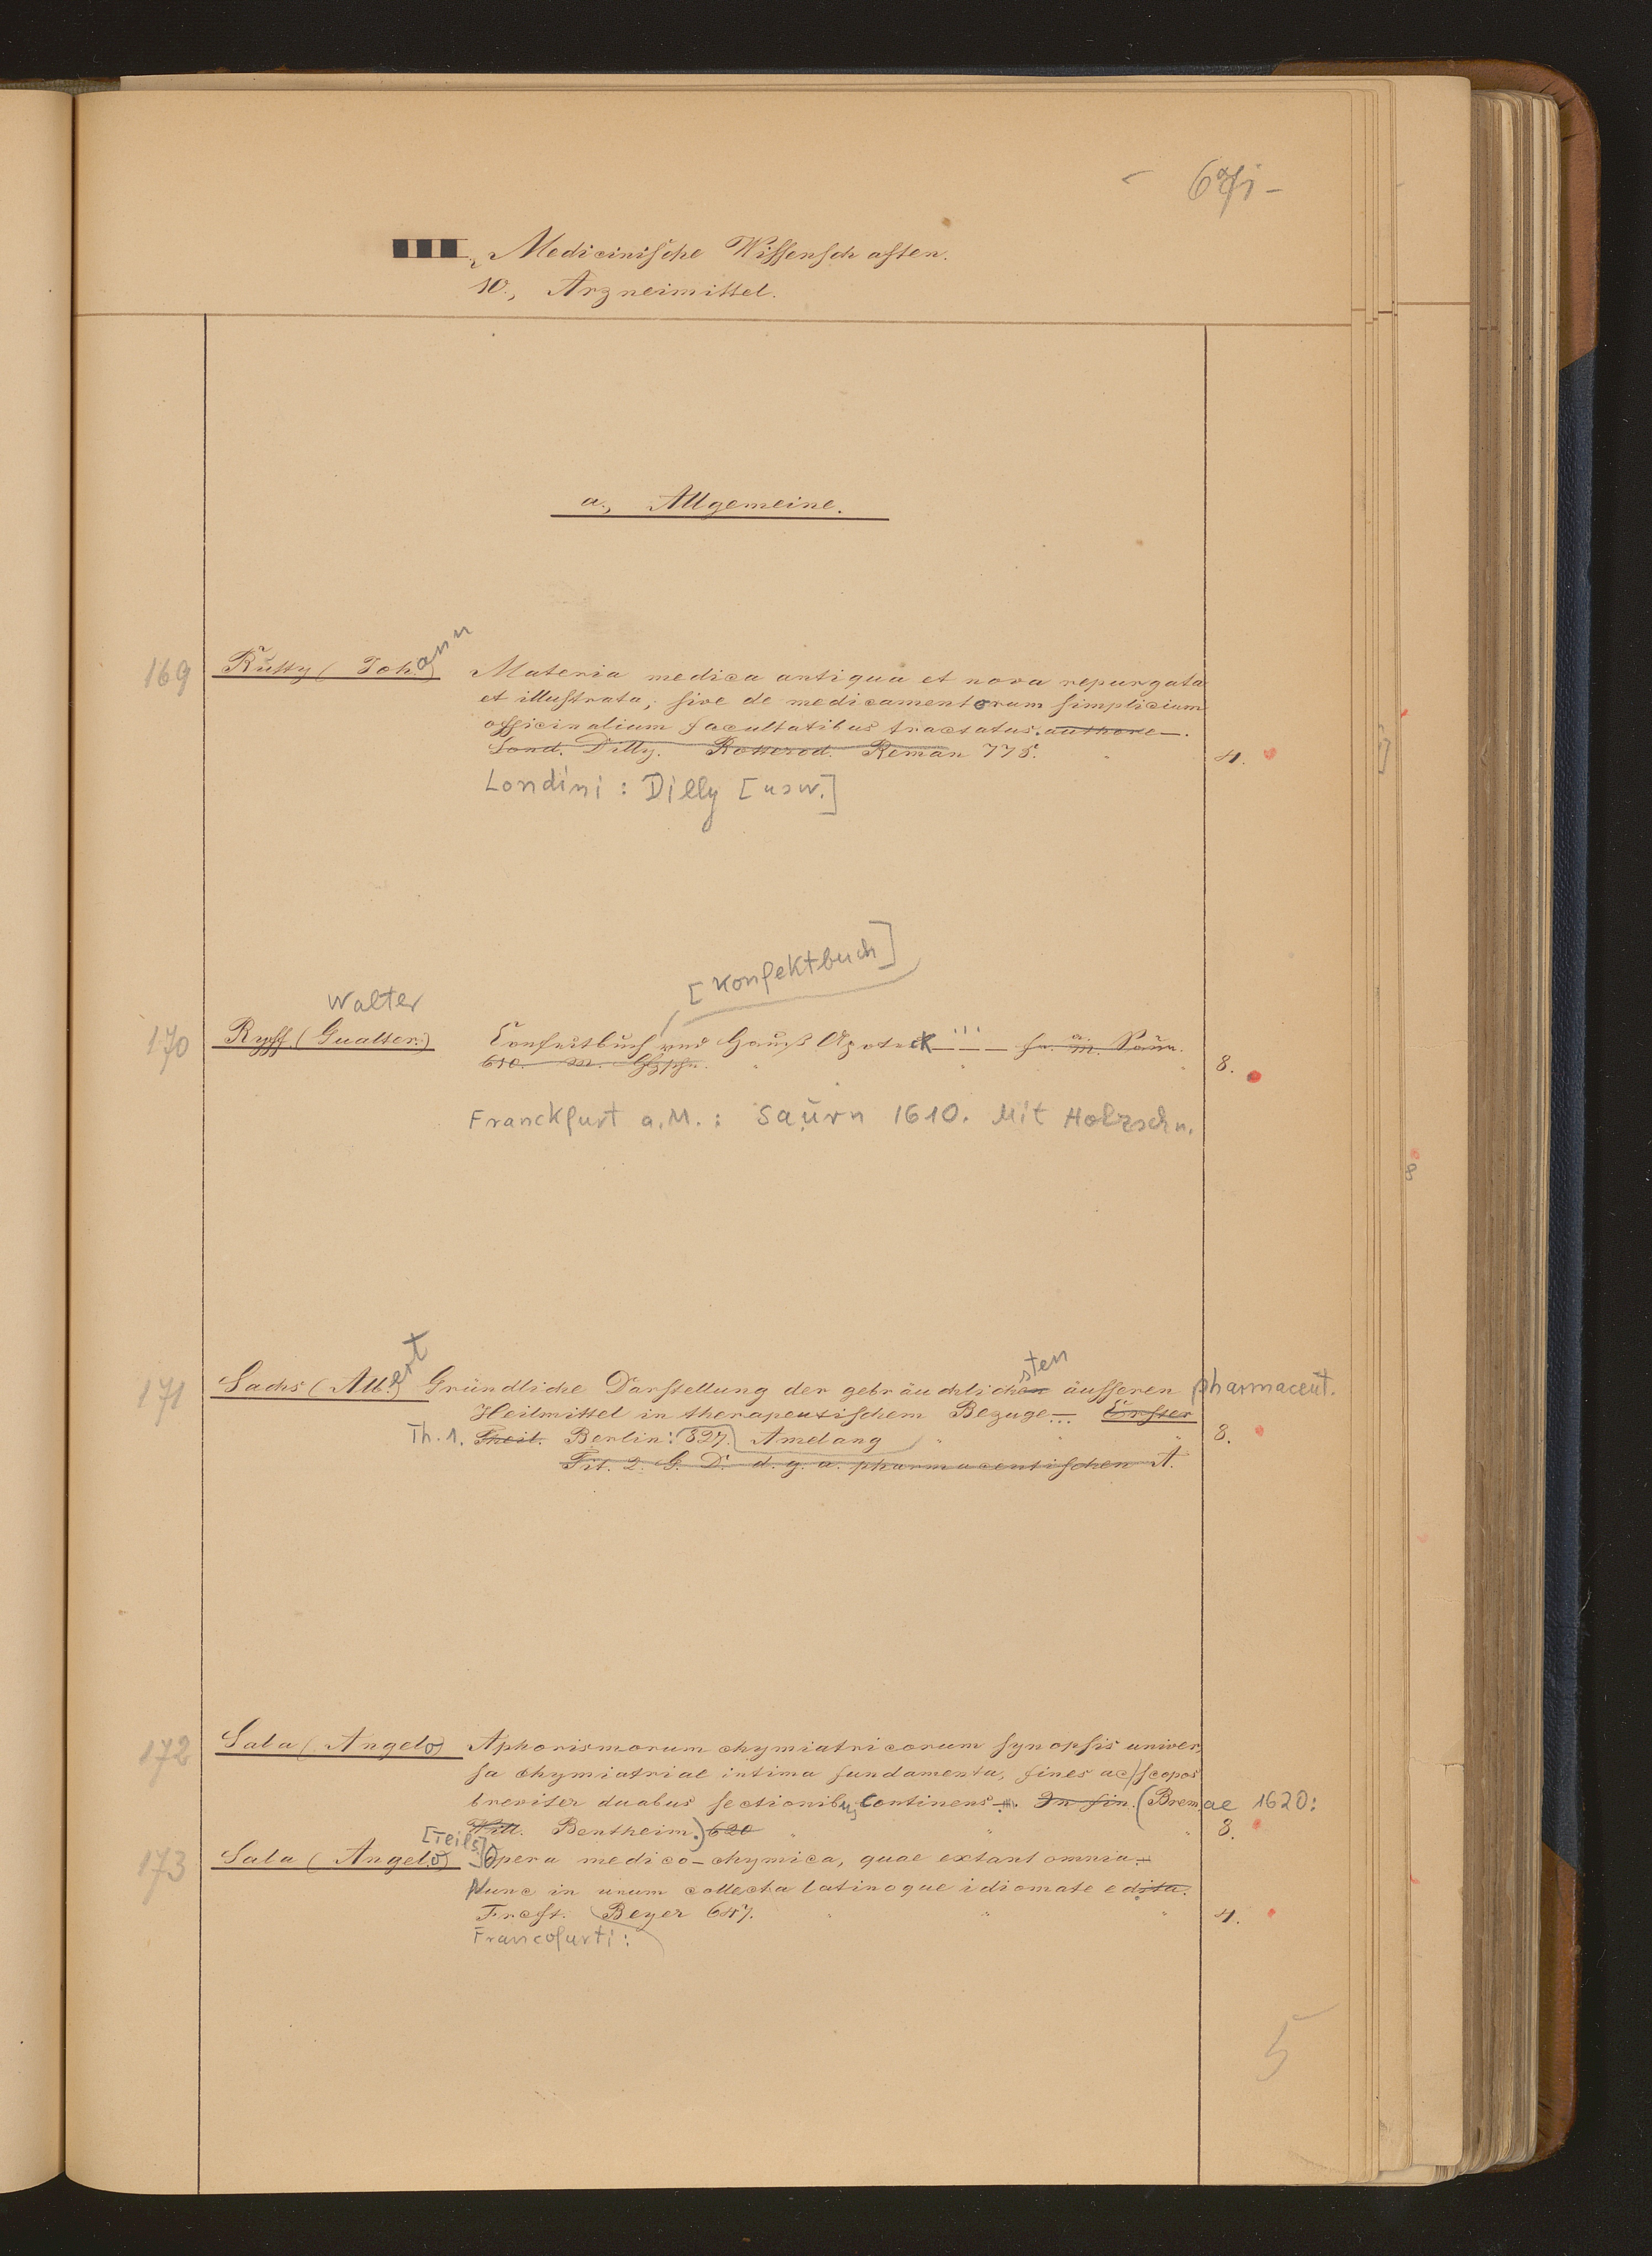 Medicinische Wissenschaften.
10., Arzneimittel.
a., Allgemeine.
169 Rutty (Johann) Materia medica antiqua et nova repurgata
et illustrata, sive de medicamentorum simplicium
officinalium facultatibus tractatus. authore —.
Lond. Dilly. Rotterod. Reman 775. 4.
Londini: Dilly [usw.]
[Konfektbuch]
Walter
170 Ryff (Gualter.) Confectbuch und Hauß Apoteck ... — Fr. a. M. Saur.
610. M. 8.
Franckfurt a.M.: Saurn 1610. Mit Holzschn.
sten
171 Sachs (Albert) Gründliche Darstellung der gebräuchlichen äusseren pharmaceut.
Heilmittel in therapeutischem Bezuge —... Erster
Th. 1. Theil. Berlin: 827. Amelang 8.
Tit. 2. G. D. d. g. a. pharmaceutischen A.
172 Sala (Angelo) Aphorismorum chymiatricorum synopsis univer,
sa chymiatriae intima fundamenta, fines ac scopos
breviter duabus sectionibus continens —. In fin. (Bremae 1620:
Will. Bentheim.) 620 8.
[Teils]
173 Sala (Angelo) Opera medico-chymica, quae extant omnia.
Nunc in unum collecta latinoque idiomate edita.
Frcft. Beyer 647. 4.
Francofurti:
5